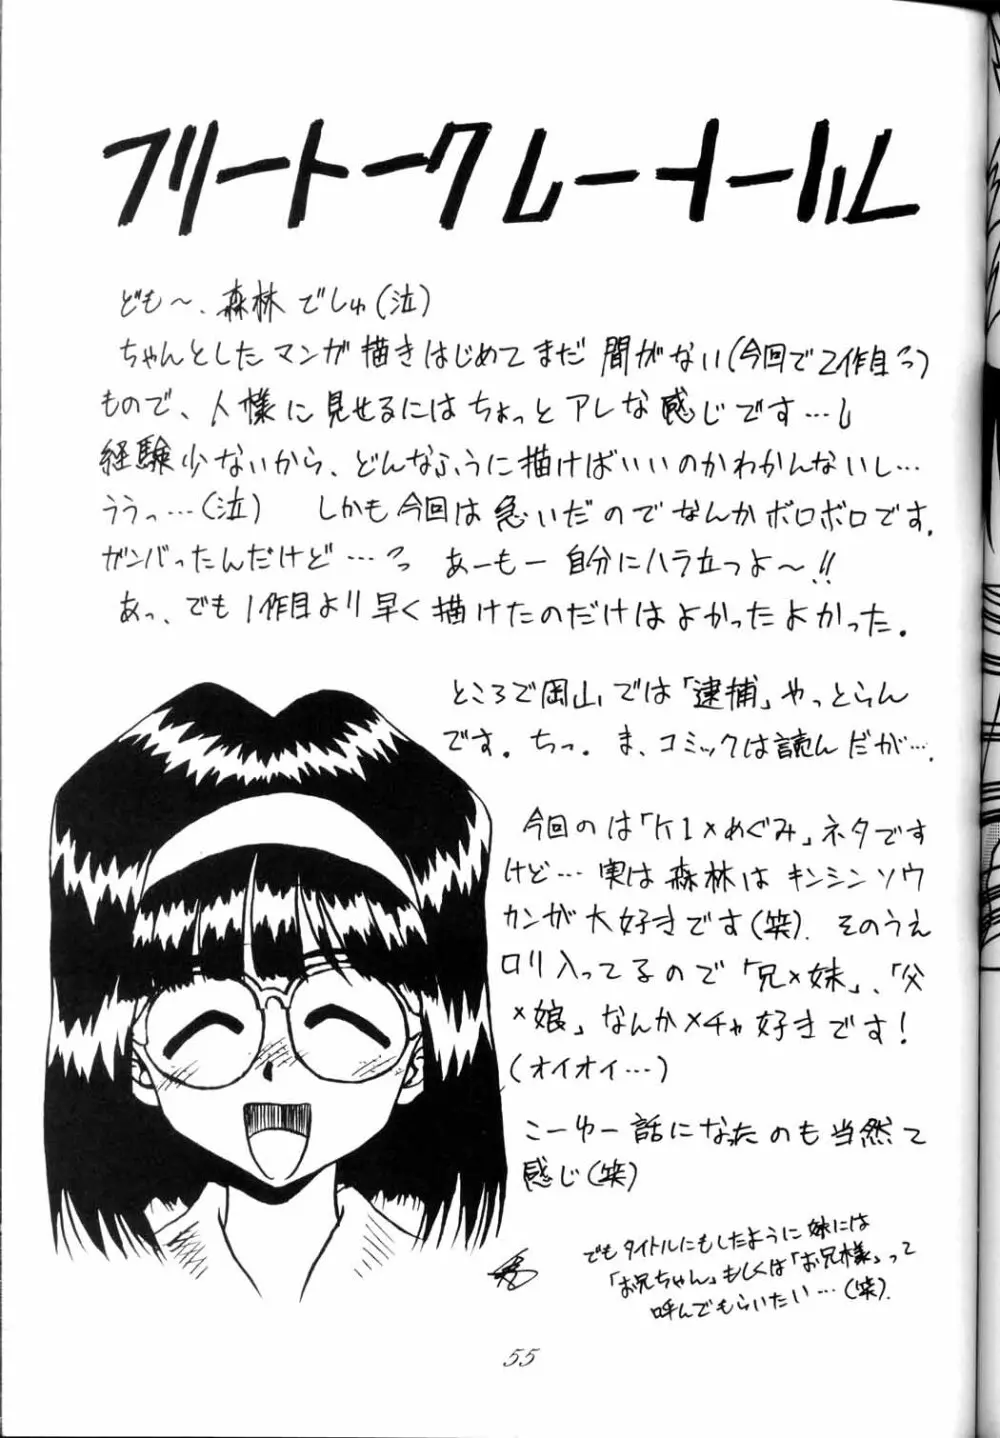 フリートークしーイールし
ども〜、森林でしゅ(泣)
ちゃんとしたマンガ描きはじめてまだ間がない(今回で2作目っ)
もので、人様に見せるにはちょっとアレな感じです…し
経験少ないから、どんなふうに描けばいいのかわかんないし…
ううっ…(泣) しかも今回は急いだのでなんかボロボロです。
ガンバったんだけど…っ あーもー自分にハラ立つよ〜!!
あっ、でも1作目より早く描けたのだけはよかったよかった。
ところで岡山では「逮捕」やっとらん
です。ちっ。ま、コミックは読んだが…。
今回のは「K1×めぐみ」ネタです
けど…実は森林はキンシンソウ
カンが大好きです(笑)。そのうえ
ロリ入ってるので「兄×妹」、「父
×娘」なんかメチャ好きです!
(オイオイ…)
こーゆー話になったのも当然て
感じ(笑)
でもタイトルにもしたように妹には
「お兄ちゃん」もしくは「お兄様」って
呼んでもらいたい…(笑)。
55